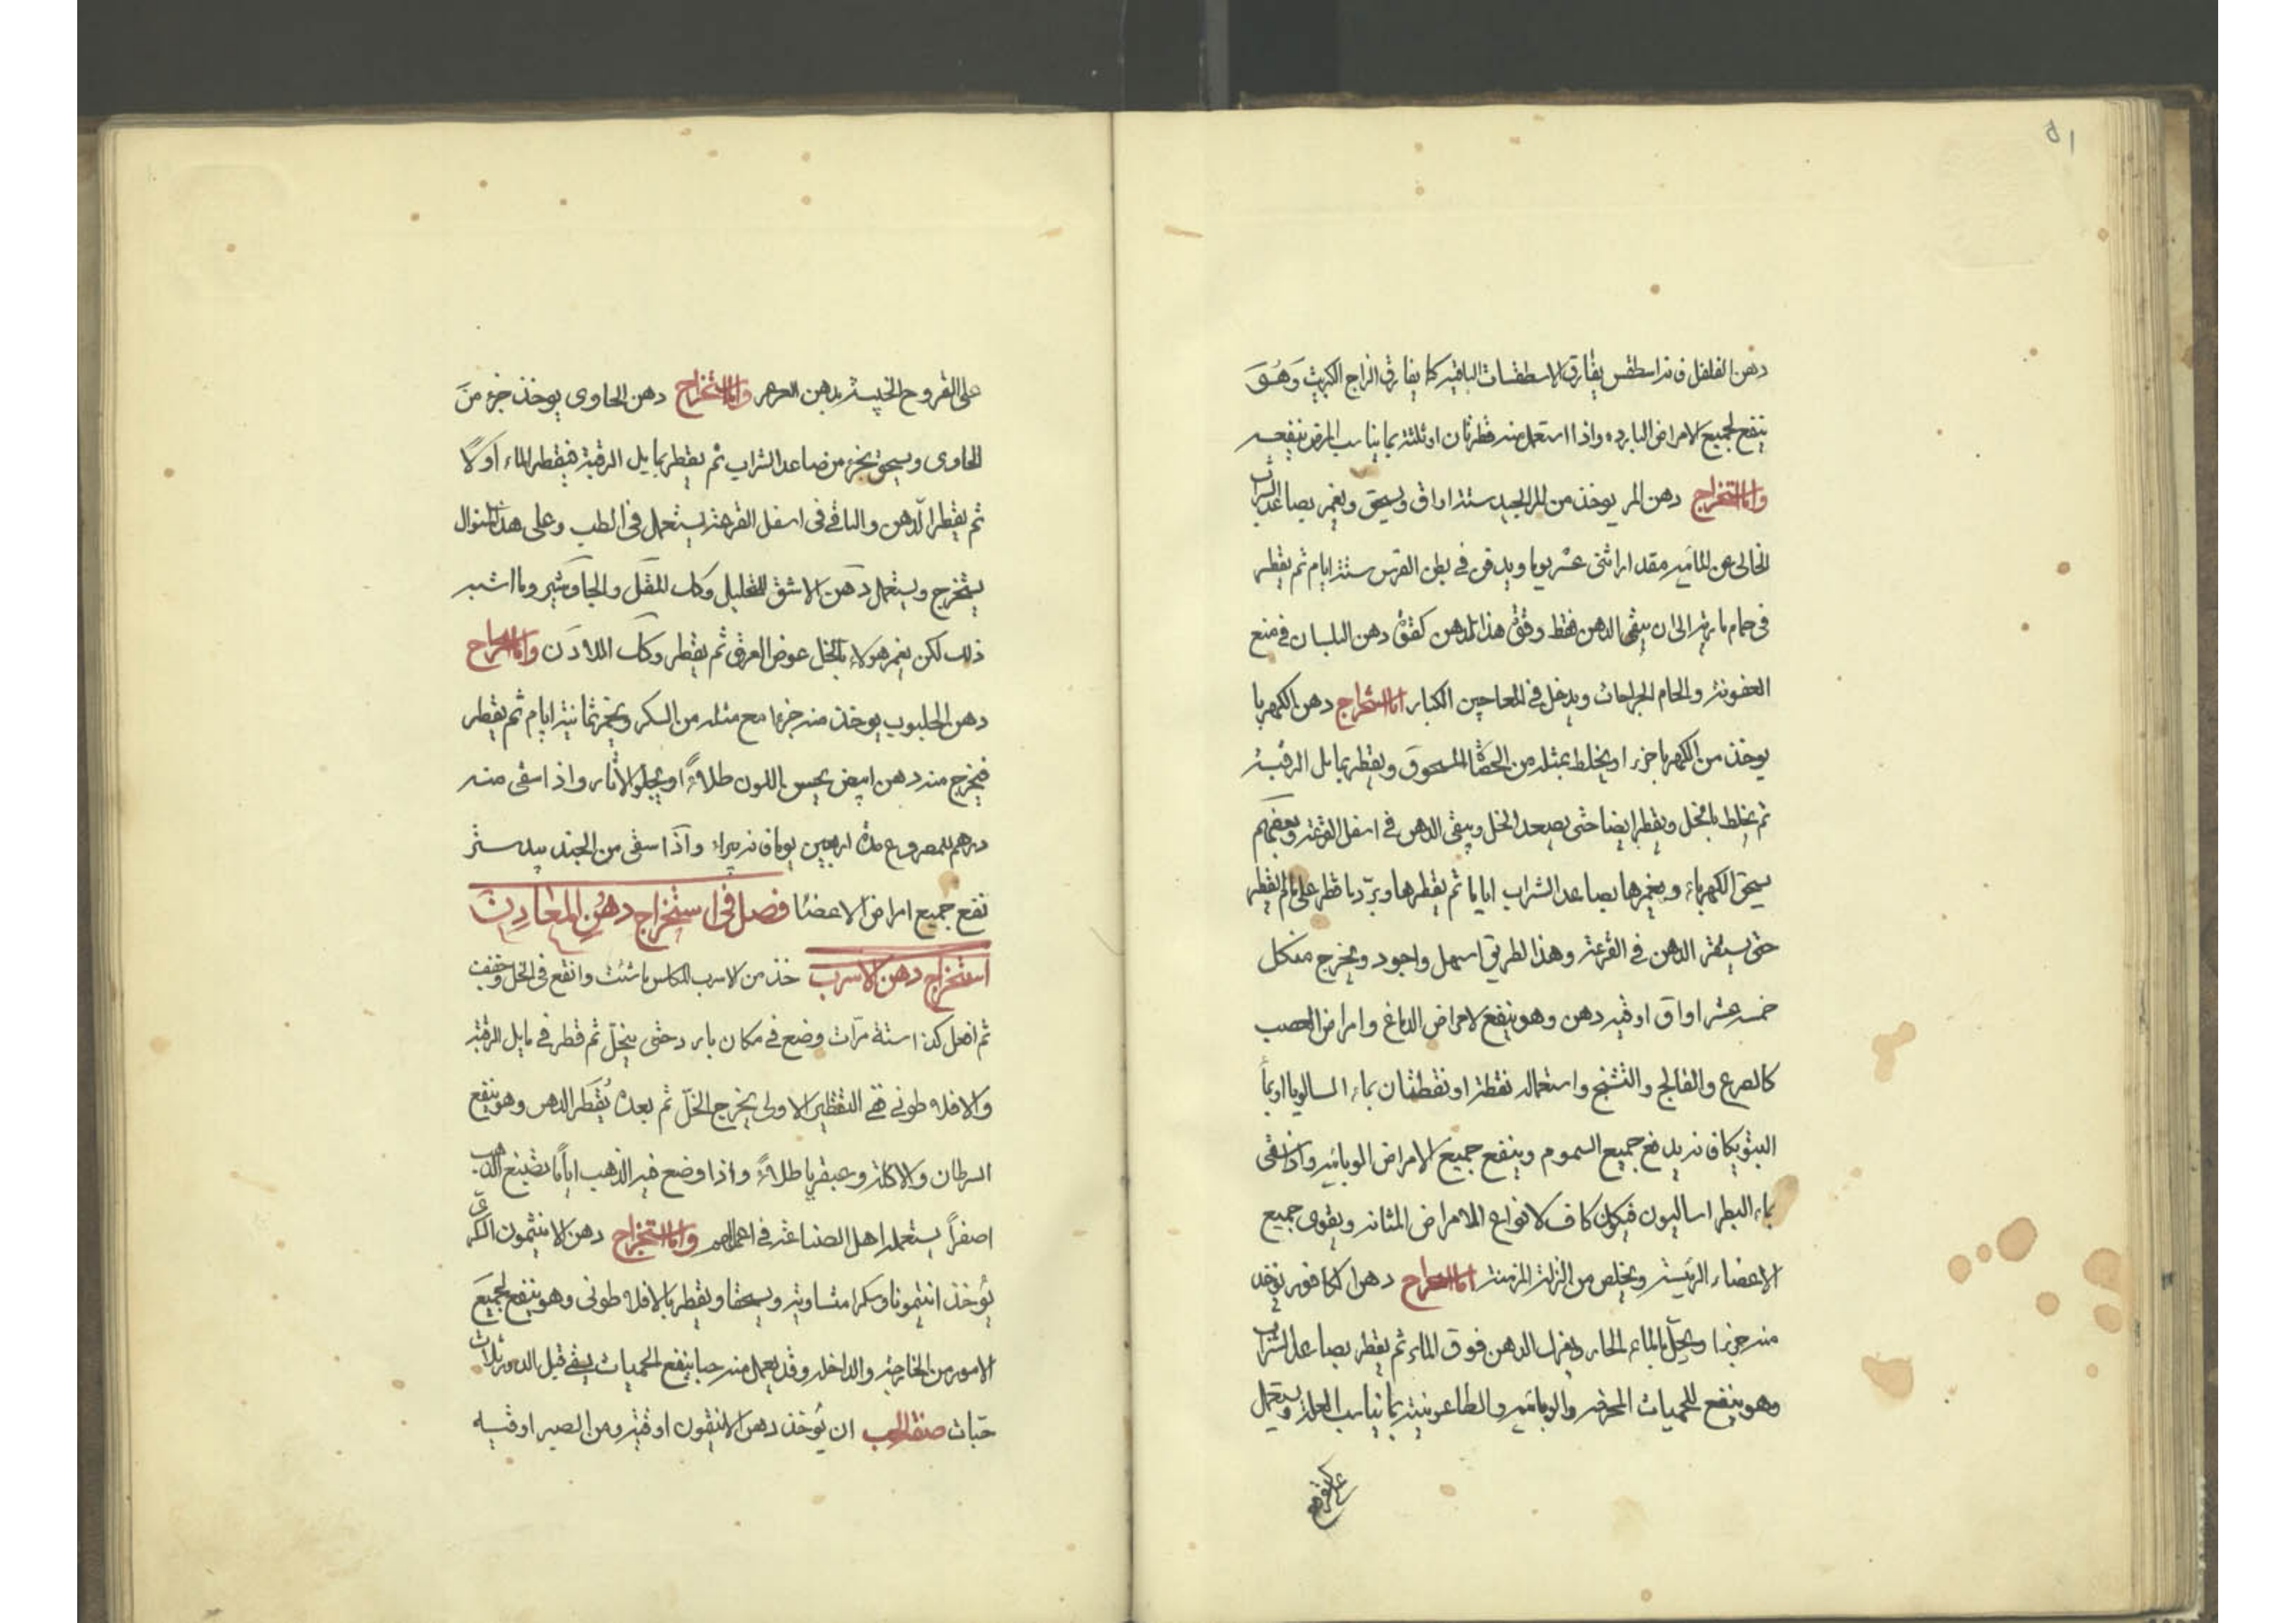 ٥١
دهن الفلفل فانه اسطقس يفارق الاسطقسات الباقية كما يفارق الزاج الكبريت وهو
ينفع لجميع الامراض الباردة واذا استعمل منه قطرتان او ثلثة بما يناسب المرض نفعه
واما استخراج دهن المر يوخذ من المر الجيد ستة اواق ويسحق ويغمر بصاعد الشراب
الخالي عن المائية مقدار اثنى عشر يوما ويدفن في بطن الفرس ستة ايام ثم يقطر
في حمام مارية الى ان يبقى الدهن فقط وقوة هذا الدهن كقوة دهن البلسان في منع
العفونة والحام الجراحات ويدخل في المعاجين الكبار اما استخراج دهن الكهربا
يوخذ من الكهربا جزء او يخلط بمثله من الحصاة المسحوق ويقطر بمايل الرقبة
ثم يخلط بالخل ويقطر ايضا حتى يصعد الخل ويبقى الدهن في اسفل القرعة وبعضهم
يسحق الكهرباء ويغمرها بصاعد الشراب اياما ثم يقطرها ويرد ما قطر على مالم يقطر
حتى يستقر الدهن في القرعة وهذا الطريق اسهل واجود ويخرج من كل
خمسة عشر اواق اوقية دهن وهو ينفع لامراض الدماغ وامراض العصب
كالصرع والفالج والتشنج واستعماله نقطة او نقطتان بماء السالويا او بماء
البتونيكا فانه يدفع جميع السموم وينفع جميع الامراض الوبائية واذا سقى
بماء البطراساليون فيكون كاف لانواع الامراض المثانة ويقوى جميع
الاعضاء الرئيسة ويخلص من النزلة المزمنة اما استخراج دهن الكافور يوخذ
منه جزءا ويحل بالماء الحار ويغرف الدهن فوق الماء ثم يقطر بصاعد الشراب
وهو ينفع للحميات المحرقة والوبائية والطاعونية بما يناسب العلة ويستعمل
على القروح
على القروح الخبيثة بدهن واما استخراج دهن الجاوى يوخذ جزء من
الجاوى ويسحق بجزء من صاعد الشراب ثم يقطر بمايل الرقبة فيقطر الماء اولا
ثم يقطر الدهن والباقي في اسفل القرعة يستعمل في الطب وعلى هذا المنوال
يستخرج ويستعمل دهن الاشق للتحليل وكذلك المقل والجاوشير وما اشبه
ذلك لكن يغمر هولاء بالخل عوض العرق ثم يقطر وكذلك اللادن واما استخراج
دهن الحلبوب يوخذ منه جزءا مع مثله من السكر ويخمر ثمانية ايام ثم يقطر
فيخرج منه دهن ابيض يحسن اللون طلاءً او يجلو الاثار واذا سقى منه
درهم للمصروع مدة اربعين يوما فانه يبراء واذا سقى من الجندبيدستر
نفع جميع امراض الاعضا فصل في استخراج دهن المعادن
استخراج دهن الاسرب خذ من الاسرب المكلس ما شئت وانقع في الخل وجفف
ثم افعل كذا ستة مرات وضع في مكان بارد حتى ينحل ثم قطر في مايل الرقبة
والافلاطوني ففي التقطير الاولى يخرج الخل ثم بعده يقطر الدهن وهو ينفع
السرطان والاكلة وعبقريا طلاءً واذا وضع فيه الذهب اياما يصنع الذهب
اصفرا يستعمله اهل الصناعة في اعمالهم واما استخراج دهن الانتيمون السكرى
يؤخذ انتيمونا وسكرا متساوية ويسحقا ويقطر بالافلاطوني وهو ينفع لجميع
الامور من الخارجة والداخلة وقد يعمل منه حبا ينفع الحميات يسقى قبل الدور ثلاث
حبات صنعة الحب ان يؤخذ دهن الانتيمون اوقية ومن الصبر اوقية